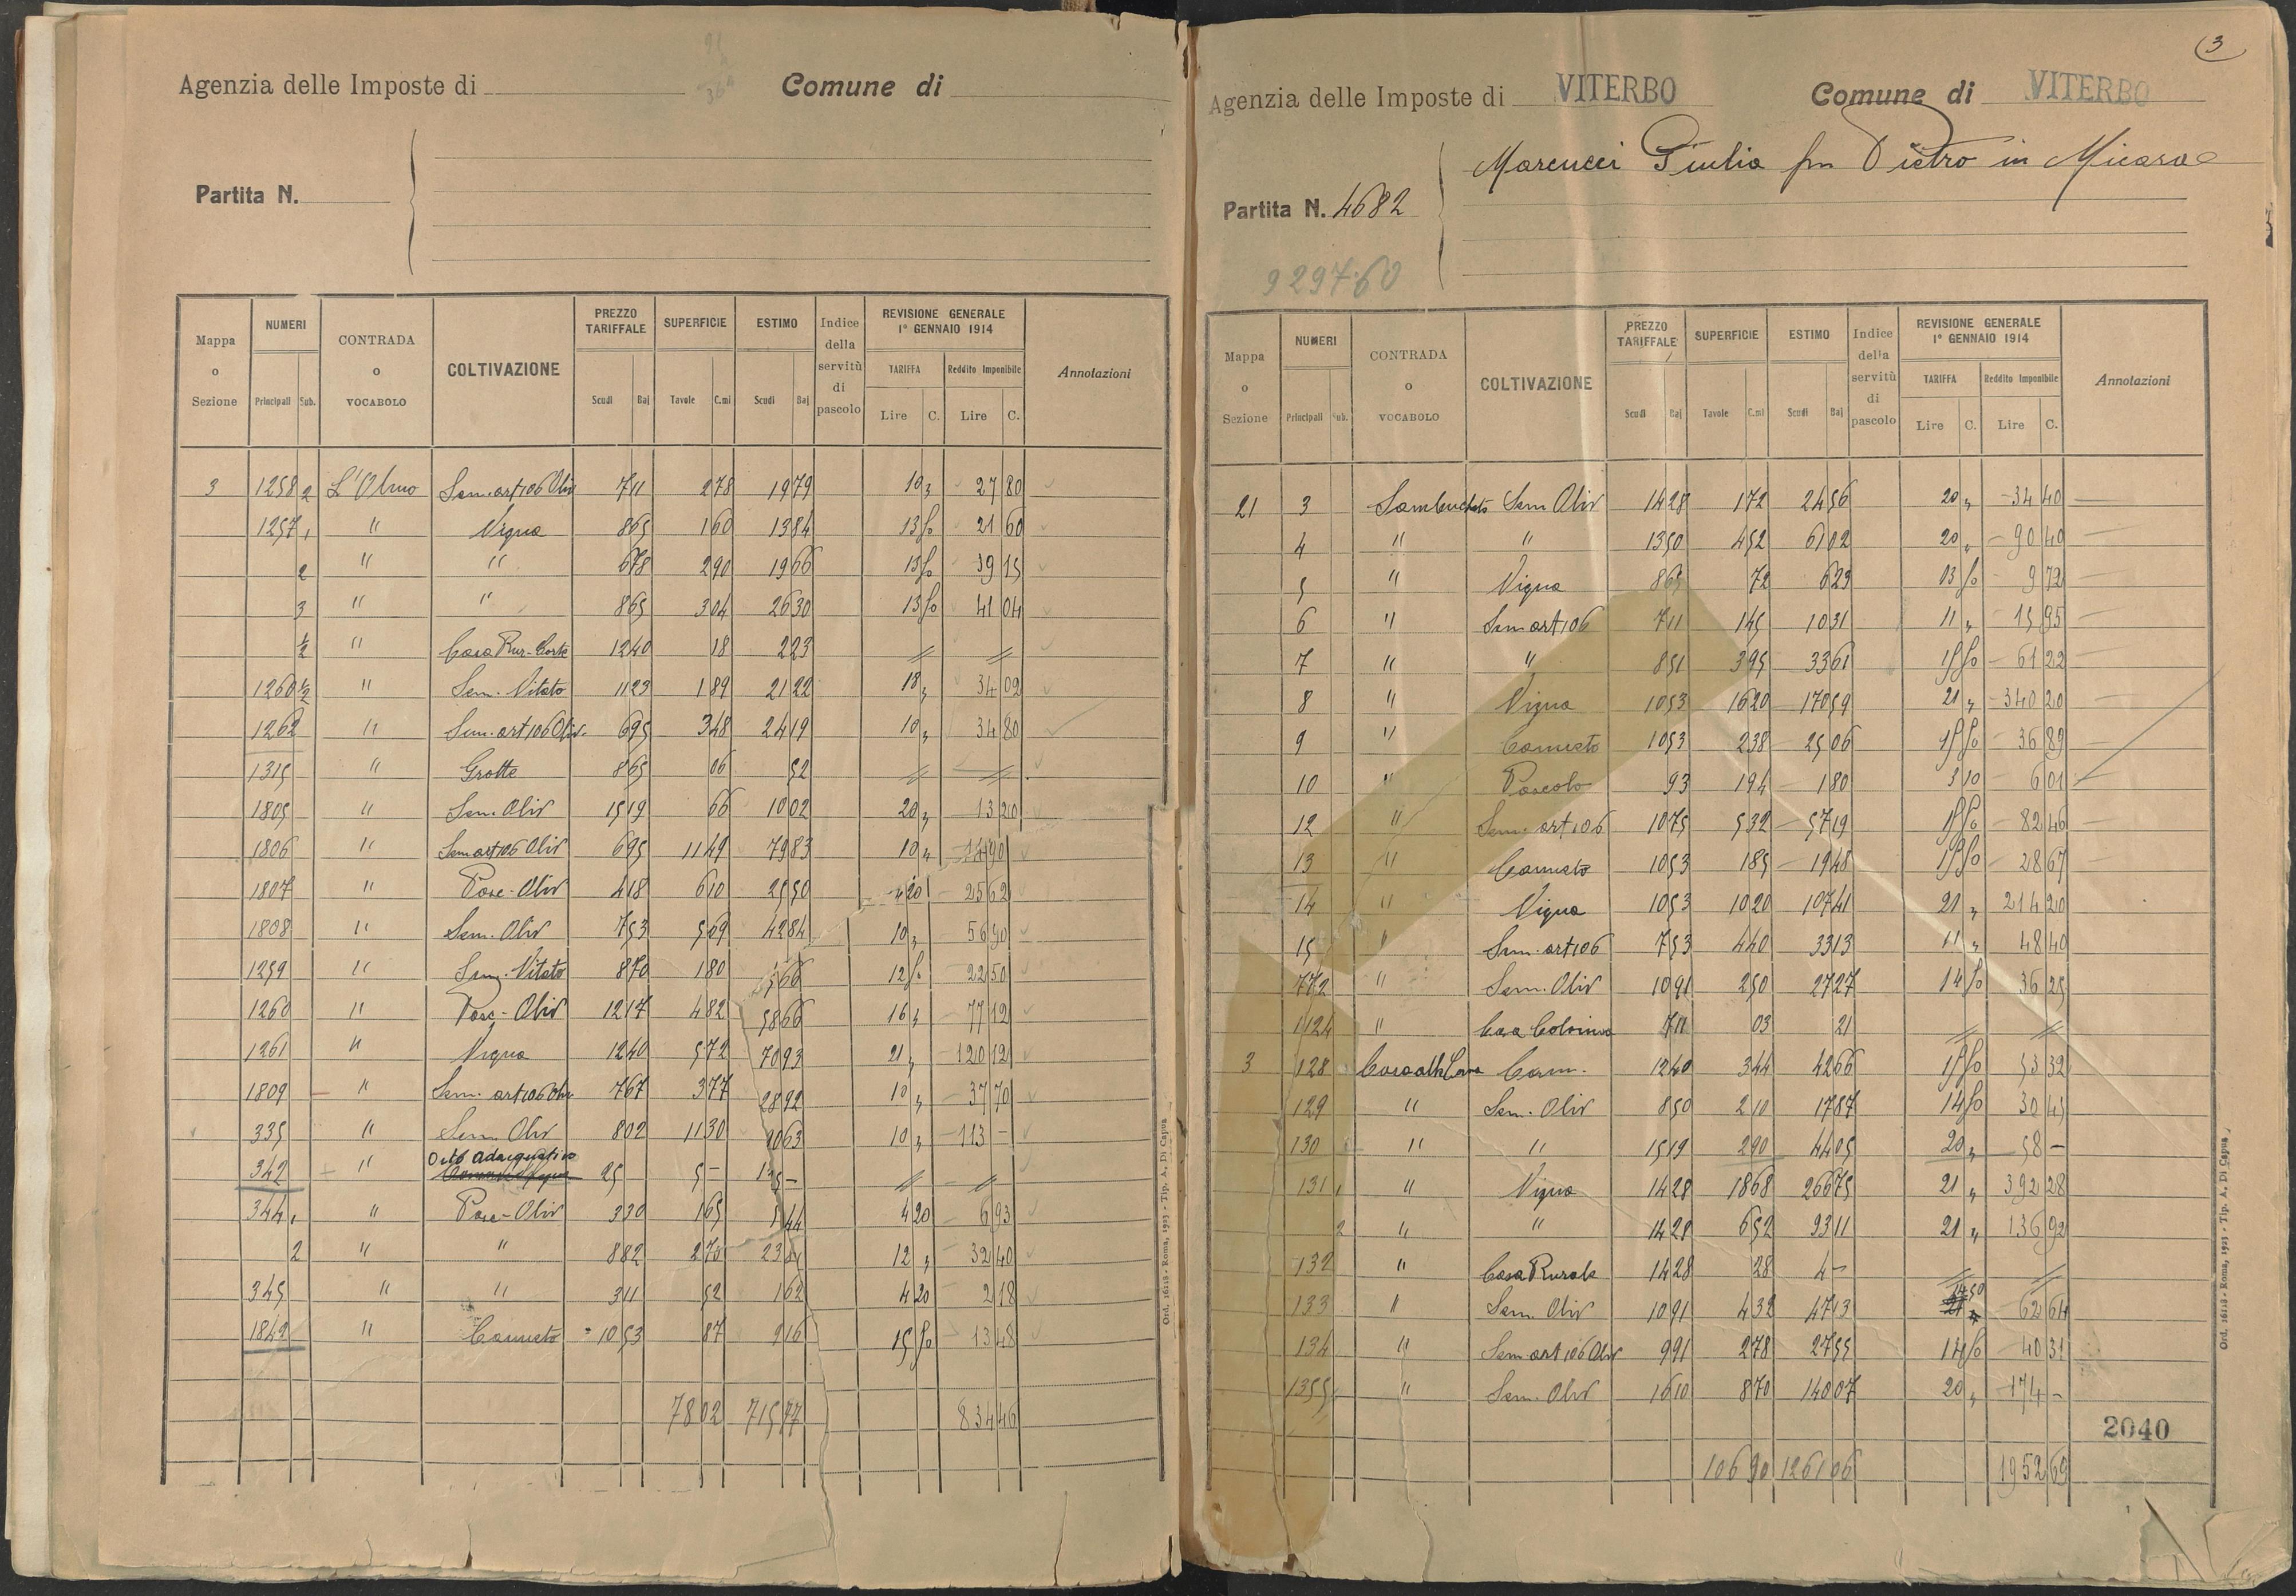 Agenzia delle Imposte di Comune di
Partita N.
Mappa o Sezione NUMERI Principali Sub. CONTRADA o VOCABOLO COLTIVAZIONE PREZZO TARIFFALE Scudi Baj SUPERFICIE Tavole C.mi ESTIMO Scudi Baj Indice della servitù di pascolo REVISIONE GENERALE 1° GENNAIO 1914 TARIFFA Lire C. Reddito Imponibile Lire C. Annotazioni
3 1258 2 L'Olmo Sem. art 106 Oliv 7 11 2 78 19 79 10 " 27 80
1257 1 " Vigna 8 65 1 60 13 84 13 50 21 60
2 " " 6 78 2 90 19 66 13 50 39 15
3 " " 8 65 3 04 26 30 13 50 41 04
1/2 " Casa Rur-Corte 12 40 18 2 23 " "
1260 1/2 " Sem. Vitato 11 23 1 89 21 22 18 " 34 02
1262 " Sem. art 106 Oliv. 6 95 3 48 24 19 10 " 34 80
1315 " Grotte 8 65 06 52 " "
1805 " Sem. Oliv 15 19 66 10 02 20 " 13 20
1806 " Sem art 106 Oliv 6 95 11 49 79 83 10 " 114 90
1807 " Pasc-Oliv 4 18 6 10 25 50 4 20 25 62
1808 " Sem. Oliv 7 53 5 69 42 84 10 " 56 90
1259 " Sem. Vitato 8 70 1 80 15 66 12 50 22 50
1260 " Pasc-Oliv 12 17 4 82 58 66 16 " 77 12
1261 " Vigna 12 40 5 72 70 93 21 " 120 12
1809 " Sem. art 106 Oliv 7 67 3 77 28 92 10 " 37 70
335 " Sem. Oliv 8 02 11 30 90 63 10 " 113 -
342 " Orto Adacquativo 25 - 5 - 125 - " "
344 1 " Pasc-Oliv 3 30 1 65 5 44 4 20 6 93
2 " " 8 82 2 70 23 81 12 " 32 40
345 " " 3 11 52 1 62 4 20 2 18
1842 " Canneto 10 53 87 9 16 15 50 13 48
78 02 715 97 834 46
Ord. 16118 - Roma, 1923 - Tip. A. Di Capua
3
Agenzia delle Imposte di VITERBO Comune di VITERBO
Marcucci Giulia fu Pietro in Micara
Partita N. 4682
9297.60
Mappa o Sezione NUMERI Principali Sub. CONTRADA o VOCABOLO COLTIVAZIONE PREZZO TARIFFALE Scudi Baj SUPERFICIE Tavole C.mi ESTIMO Scudi Baj Indice della servitù di pascolo REVISIONE GENERALE 1° GENNAIO 1914 TARIFFA Lire C. Reddito Imponibile Lire C. Annotazioni
21 3 Sem Oliv 14 28 1 72 24 56 20 " 34 40
4 " " 13 50 4 52 61 02 20 " 90 40
5 " Vigna 8 65 72 6 23 13 50 9 72
6 " Sem art 106 7 11 1 45 10 31 11 " 15 95
7 " " 8 51 3 95 33 61 15 50 61 22
8 " Vigna 10 53 16 20 170 59 21 " 340 20
9 " Canneto 10 53 2 38 25 06 15 50 36 89
10 " Pascolo 93 1 94 1 80 3 10 6 01
12 " Sem. art 106 10 75 5 32 57 19 15 50 82 46
13 " Canneto 10 53 1 85 19 48 15 50 28 67
14 " Vigna 10 53 10 20 107 41 21 " 214 20
15 " Sem. art 106 7 53 4 40 33 13 11 " 48 40
772 " Sem. Oliv 10 91 2 50 27 27 14 50 36 25
1124 " Casa Colonica 7 11 03 21 " "
3 128 Cann. 12 40 3 44 42 66 15 50 53 32
129 " Sem. Oliv 8 50 2 10 17 87 14 50 30 45
130 " " 15 19 2 90 44 05 20 " 58 -
131 1 " Vigna 14 28 18 68 266 75 21 " 392 28
2 " " 14 28 6 52 93 11 21 " 136 92
132 " Casa Rurale 14 28 28 4 - " "
133 " Sem. Oliv 10 91 4 32 47 13 14 50 62 64
134 " Sem art 106 Oliv 9 91 2 78 27 55 14 50 40 31
1355 " Sem. Oliv 16 10 8 70 140 07 20 " 174 -
2040
106 90 1261 06 1952 69
Ord. 16118 - Roma, 1923 - Tip. A. Di Capua